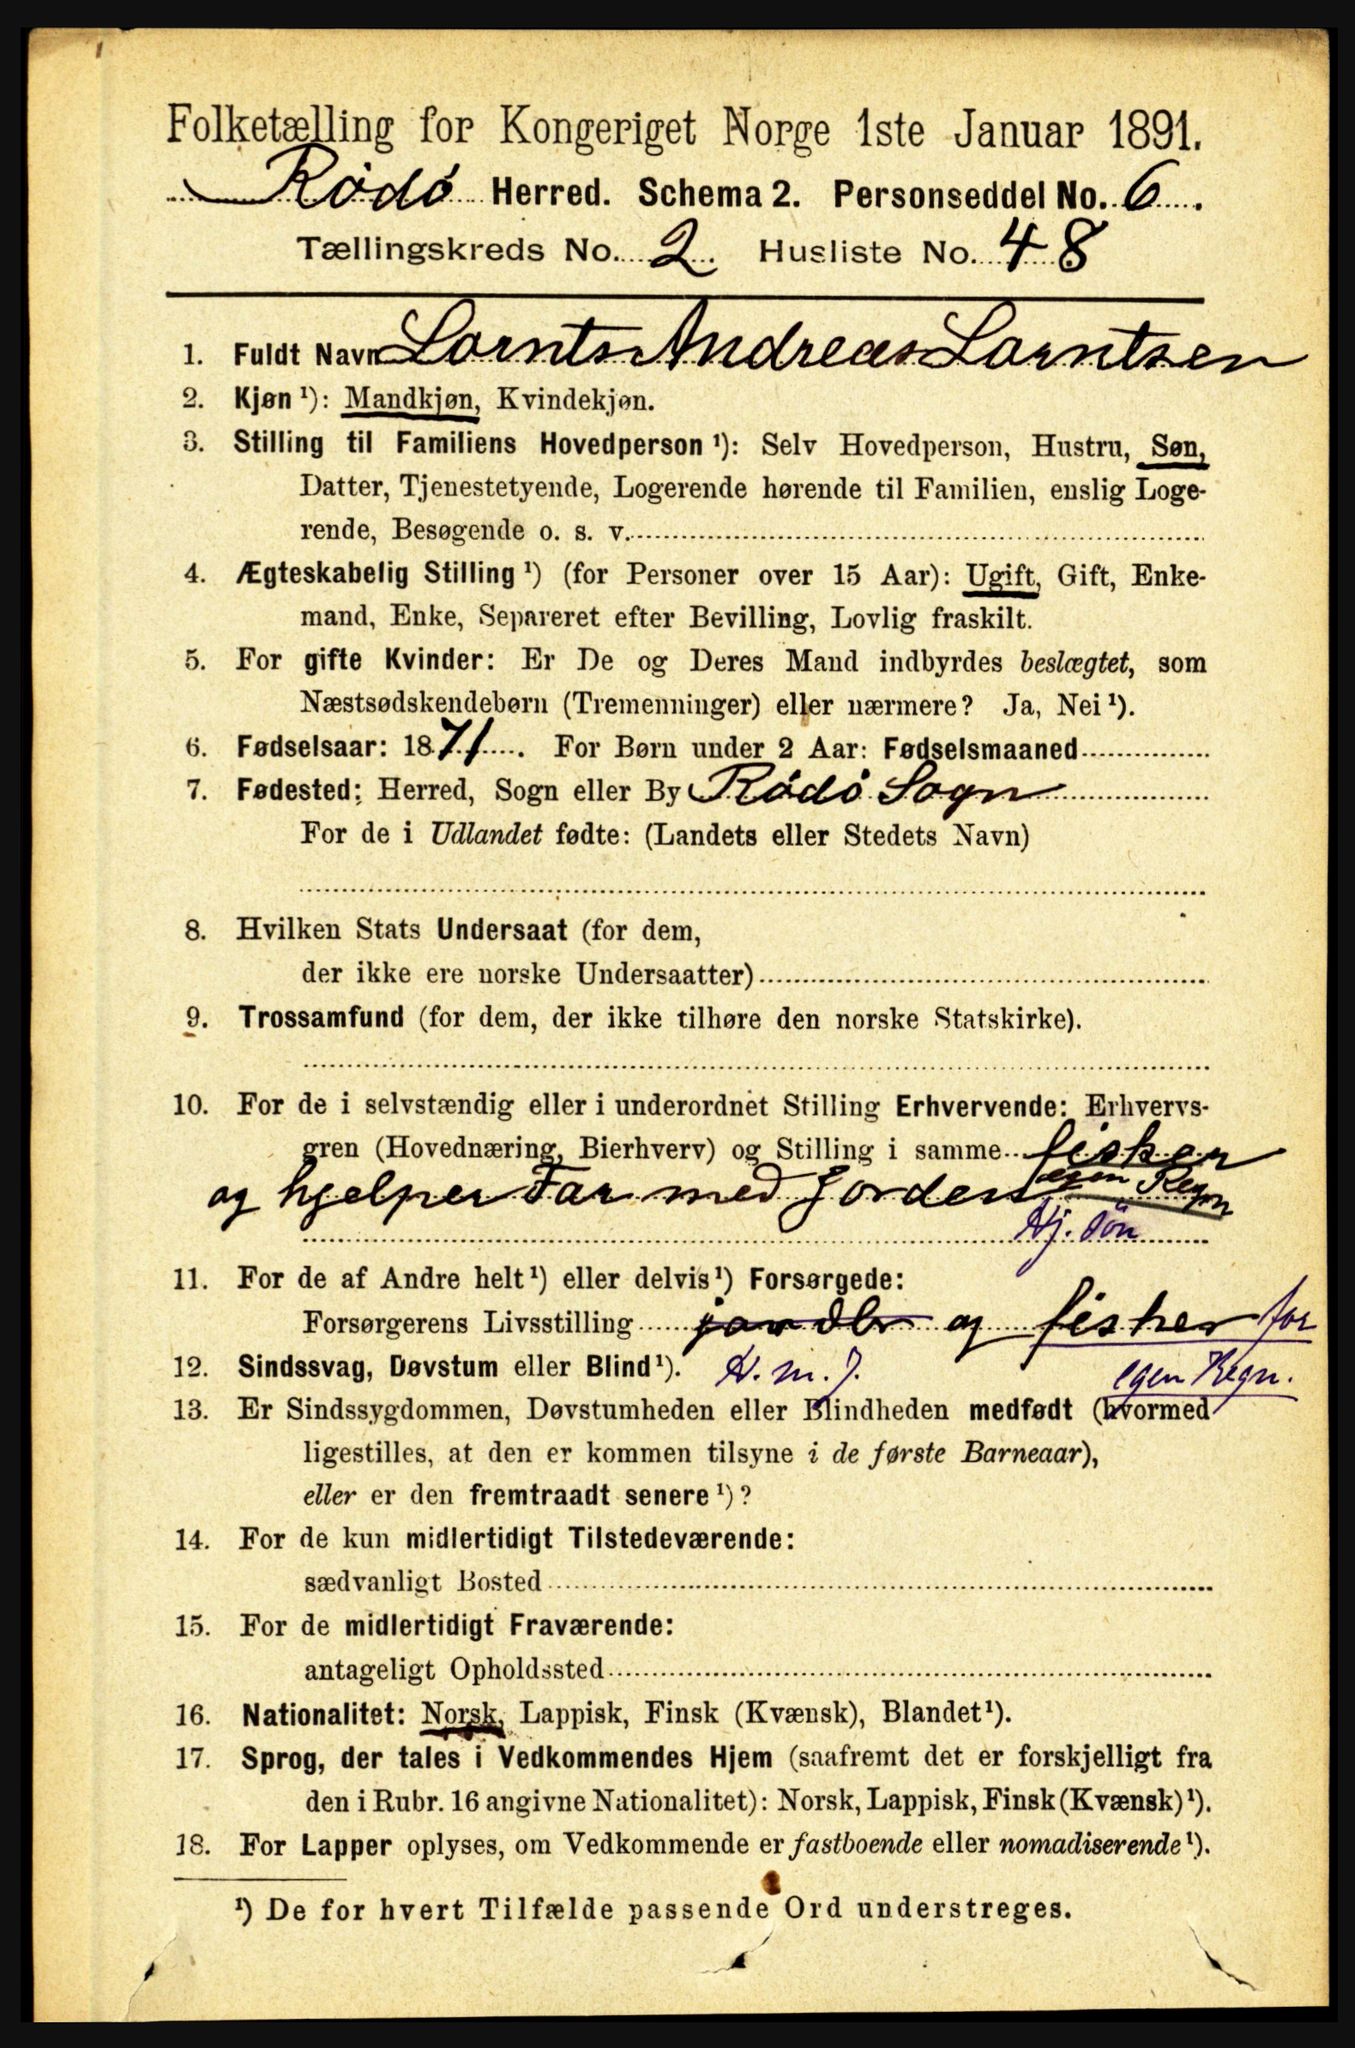 Folketælling for Kongeriget Norge 1ste Januar 1891.
Rødø Herred. Schema 2. Personseddel No. 6.
Tællingskreds No. 2. Husliste No. 48
1. Fuldt Navn Lornts Andreas Lorntsen
2. Kjøn ¹): Mandkjøn, Kvindekjøn.
3. Stilling til Familiens Hovedperson ¹): Selv Hovedperson, Hustru, Søn,
Datter, Tjenestetyende, Logerende hørende til Familien, enslig Loge-
rende, Besøgende o. s. v.
4. Ægteskabelig Stilling ¹) (for Personer over 15 Aar): Ugift, Gift, Enke-
mand, Enke, Separeret efter Bevilling, Lovlig fraskilt.
5. For gifte Kvinder: Er De og Deres Mand indbyrdes beslægtet, som
Næstsødskendebørn (Tremenninger) eller nærmere? Ja, Nei ¹).
6. Fødselsaar: 1871. For Børn under 2 Aar: Fødselsmaaned
7. Fødested: Herred, Sogn eller By Rødø Sogn
For de i Udlandet fødte: (Landets eller Stedets Navn)
8. Hvilken Stats Undersaat (for dem,
der ikke ere norske Undersaatter)
9. Trossamfund (for dem, der ikke tilhøre den norske Statskirke).
10. For de i selvstændig eller i underordnet Stilling Erhvervende: Erhvervs-
gren (Hovednæring, Bierhverv) og Stilling i samme fisker
og hjelper Far med Jorden egen Regn
Hj. Søn
11. For de af Andre helt ¹) eller delvis ¹) Forsørgede:
Forsørgerens Livsstilling og fisker for
12. Sindssvag, Døvstum eller Blind ¹). H. m. J. egen Regn.
13. Er Sindssygdommen, Døvstumheden eller Blindheden medfødt (hvormed
ligestilles, at den er kommen tilsyne i de første Barneaar),
eller er den fremtraadt senere ¹)?
14. For de kun midlertidigt Tilstedeværende:
sædvanligt Bosted
15. For de midlertidigt Fraværende:
antageligt Opholdssted
16. Nationalitet: Norsk, Lappisk, Finsk (Kvænsk), Blandet ¹).
17. Sprog, der tales i Vedkommendes Hjem (saafremt det er forskjelligt fra
den i Rubr. 16 angivne Nationalitet): Norsk, Lappisk, Finsk (Kvænsk) ¹).
18. For Lapper oplyses, om Vedkommende er fastboende eller nomadiserende ¹).
¹) De for hvert Tilfælde passende Ord understreges.